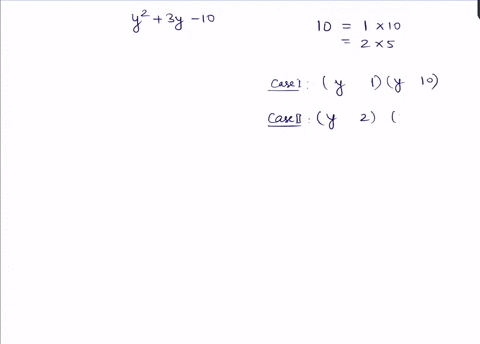 y² + 3y - 10
10 = 1 × 10
= 2 × 5
Case I : ( y 1) ( y 10)
Case II : ( y 2) (